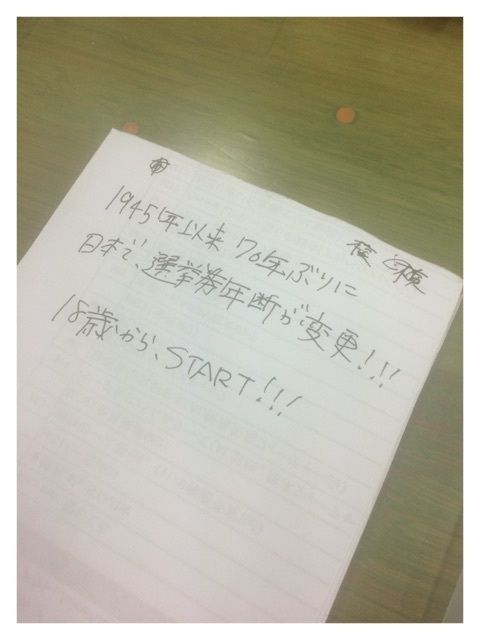 1945年以来 70年ぶりに
日本で、選挙券年断が変更!!!
18歳から、START!!!